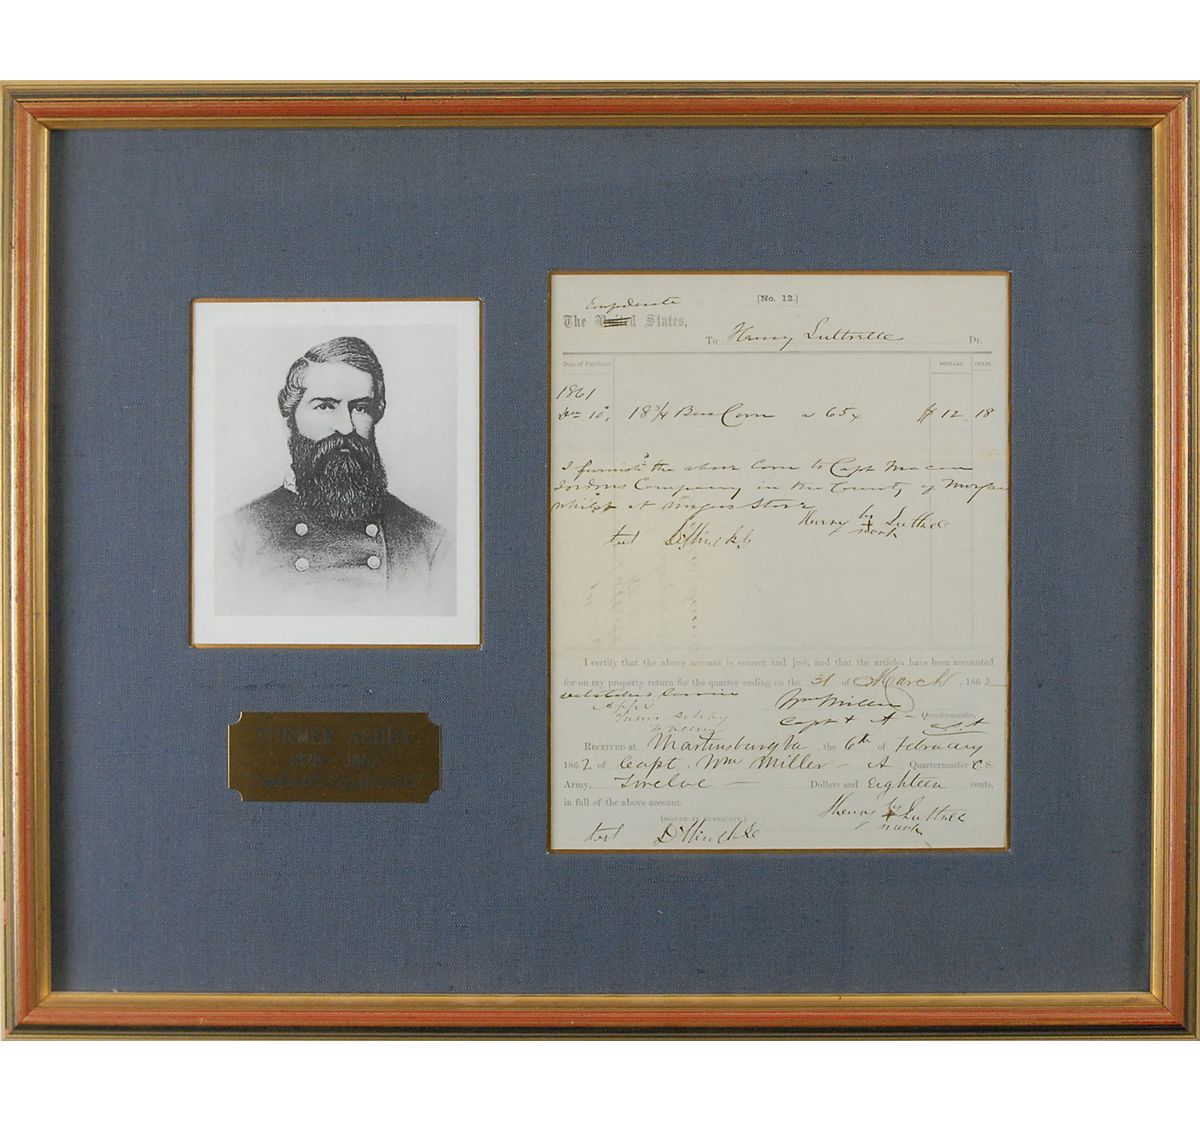 Confederate
[No. 12.]
The United States,
To Henry Luttrell Dr.
Date of Purchase. DOLLARS. CENTS.
1861
Dec 10, 18 3/4 Bus Corn a 65 $ 12 18
I furnish the above Corn to Capt Macon
Jordans Company in the County of Morgan
whilst at Store
Henry his Luttrell
mark
test
I certify that the above account is correct and just, and that the articles have been accounted
for on my property return for the quarter ending on the 31 of March , 1862
Service
Wm Miller
Capt & A - Quartermaster,
CSA
Turner Ashby
RECEIVED at Martinsburg Va , the 6th of February
1862 of Capt. Wm Miller - A Quartermaster C S.
Army, Twelve - Dollars and eighteen cents,
in full of the above account.
(SIGNED IN DUPLICATE.)
Henry his Luttrell
mark
test
TURNER ASHBY
1828 - 1862